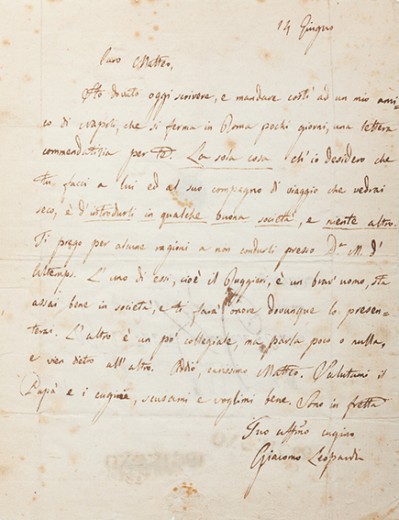 14 Giugno
Caro Matteo,
Ho dovuto oggi scrivere, e mandare costì ad un mio ami-
co di Napoli, che si ferma in Roma pochi giorni, una lettera
commendatizia per te. La sola cosa ch'io desidero che
tu facci a lui ed al suo compagno di viaggio che vedrai
seco, è d'introdurli in qualche buona società, e niente altro.
Ti prego per alcune ragioni a non condurli presso D.a M. d'
Altemps. L'uno di essi, cioè il Ruggieri, è un brav'uomo, sta
assai bene in società, e ti farà onore dovunque lo presen-
terai. L'altro è un po' collegiale, ma parla poco o nulla,
e vien dietro all'altro. Addio, carissimo Matteo. Salutami il
Papà e i cugini, scusami e voglimi bene. Sono in fretta
Tuo affmo cugino
Giacomo Leopardi